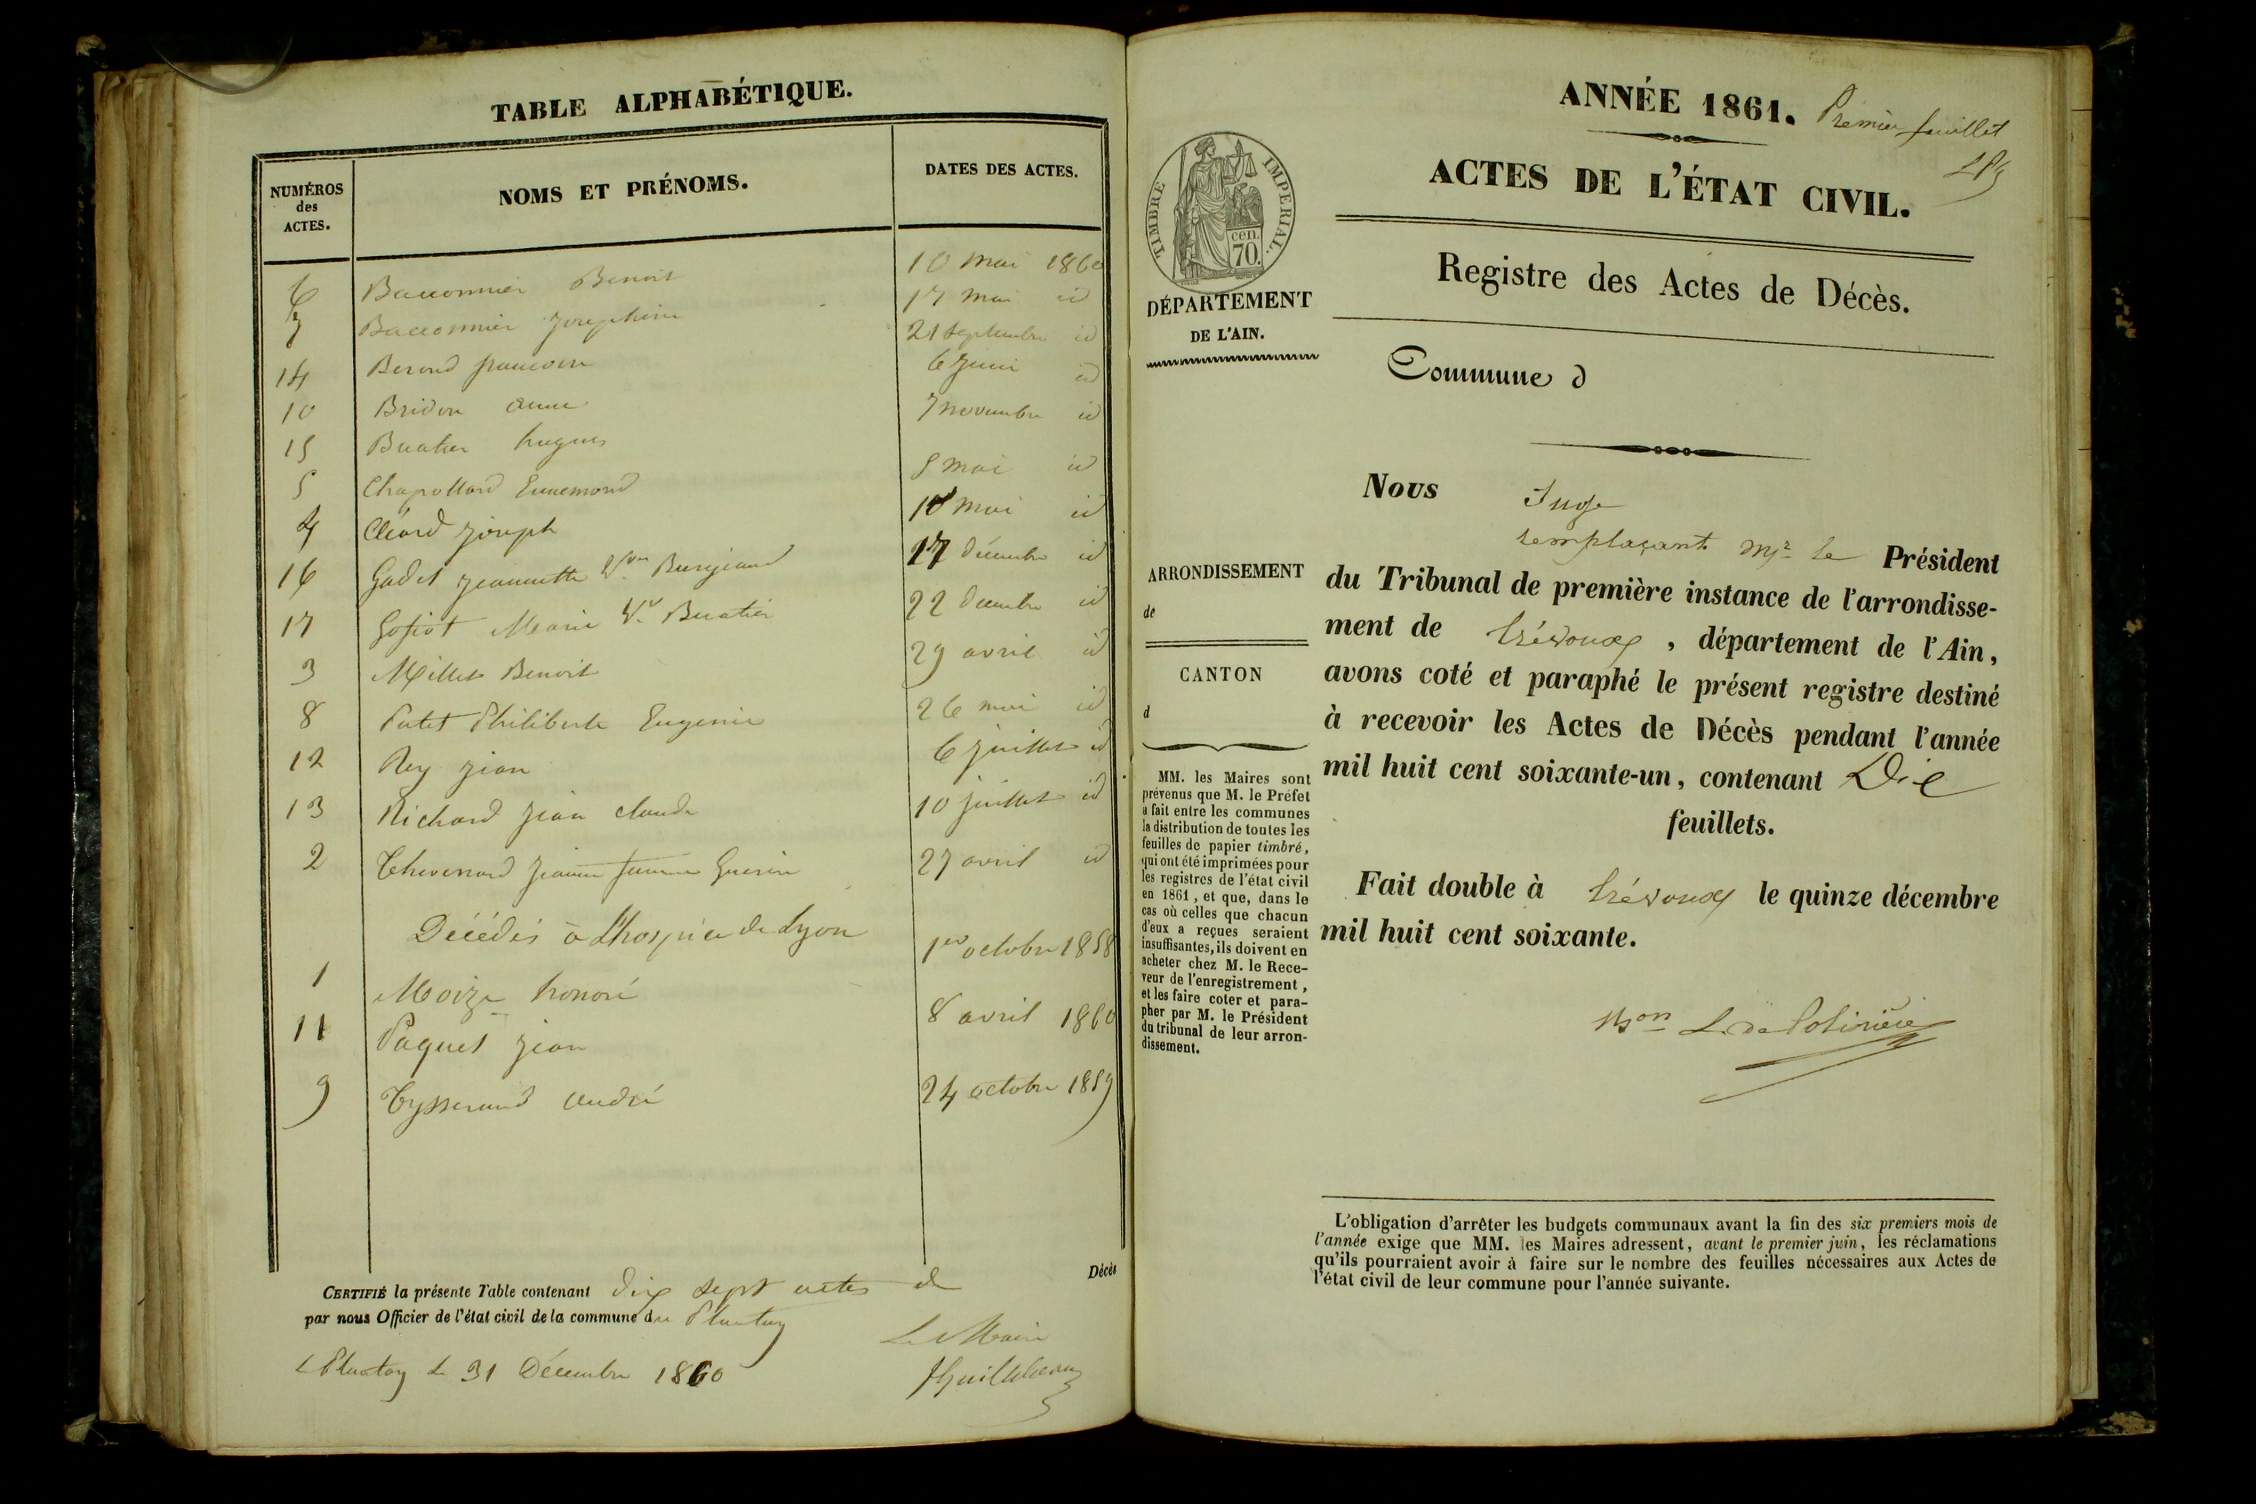 TABLE ALPHABÉTIQUE.
NUMÉROS
des
ACTES.
NOMS ET PRÉNOMS.
DATES DES ACTES.
6 Bacconnier Benoit 10 mai 1860
7 Bacconnier Josephine 17 mai id
14 francoise 21 septembre id
10 Bridon anne 6 Juin id
15 Buatier hugues 7 novembre id
5 Chapolland Ennemond 5 mai id
4 Cléard joseph mai id
16 Gadet jeannette Vve 17 décembre id
17 Gofiot Marie Ve Buatier 22 decembre id
3 Millet Benoit 29 avril id
8 Philiberte Eugenie 26 mai id
12 Rey jean 6 juillet id
13 Richard jean claude 10 juillet id
2 Thevenard jeanne femme Guerin 27 avril id
Décédés à Lhospice de Lyon
1 Moize honoré 1er octobre 1858
11 Paquet jean 8 avril 1860
9 Tysserand andré 24 octobre 1859
CERTIFIÉ la présente Table contenant dix sept actes de Décès
par nous Officier de l'état civil de la commune du Plantay
Le Plantay le 31 Décembre 1860
Le Maire
ANNÉE 1861. Premier feuillet
ACTES DE L'ÉTAT CIVIL.
TIMBRE IMPERIAL.
cen.
70.
DÉPARTEMENT
DE L'AIN.
Registre des Actes de Décès.
Commune d
Nous Juge
remplaçant Mr le Président
du Tribunal de première instance de l'arrondisse-
ment de Trévoux, département de l'Ain,
avons coté et paraphé le présent registre destiné
à recevoir les Actes de Décès pendant l'année
mil huit cent soixante-un, contenant Dix
feuillets.
Fait double à Trévoux le quinze décembre
mil huit cent soixante.
ARRONDISSEMENT
de
CANTON
d
MM. les Maires sont
prévenus que M. le Préfet
a fait entre les communes
la distribution de toutes les
feuilles de papier timbré,
qui ont été imprimées pour
les registres de l'état civil
en 1861, et que, dans le
cas où celles que chacun
d'eux a reçues seraient
insuffisantes, ils doivent en
acheter chez M. le Rece-
veur de l'enregistrement,
et les faire coter et para-
pher par M. le Président
du tribunal de leur arron-
dissement.
L'obligation d'arrêter les budgets communaux avant la fin des six premiers mois de
l'année exige que MM. les Maires adressent, avant le premier juin, les réclamations
qu'ils pourraient avoir à faire sur le nombre des feuilles nécessaires aux Actes de
l'état civil de leur commune pour l'année suivante.